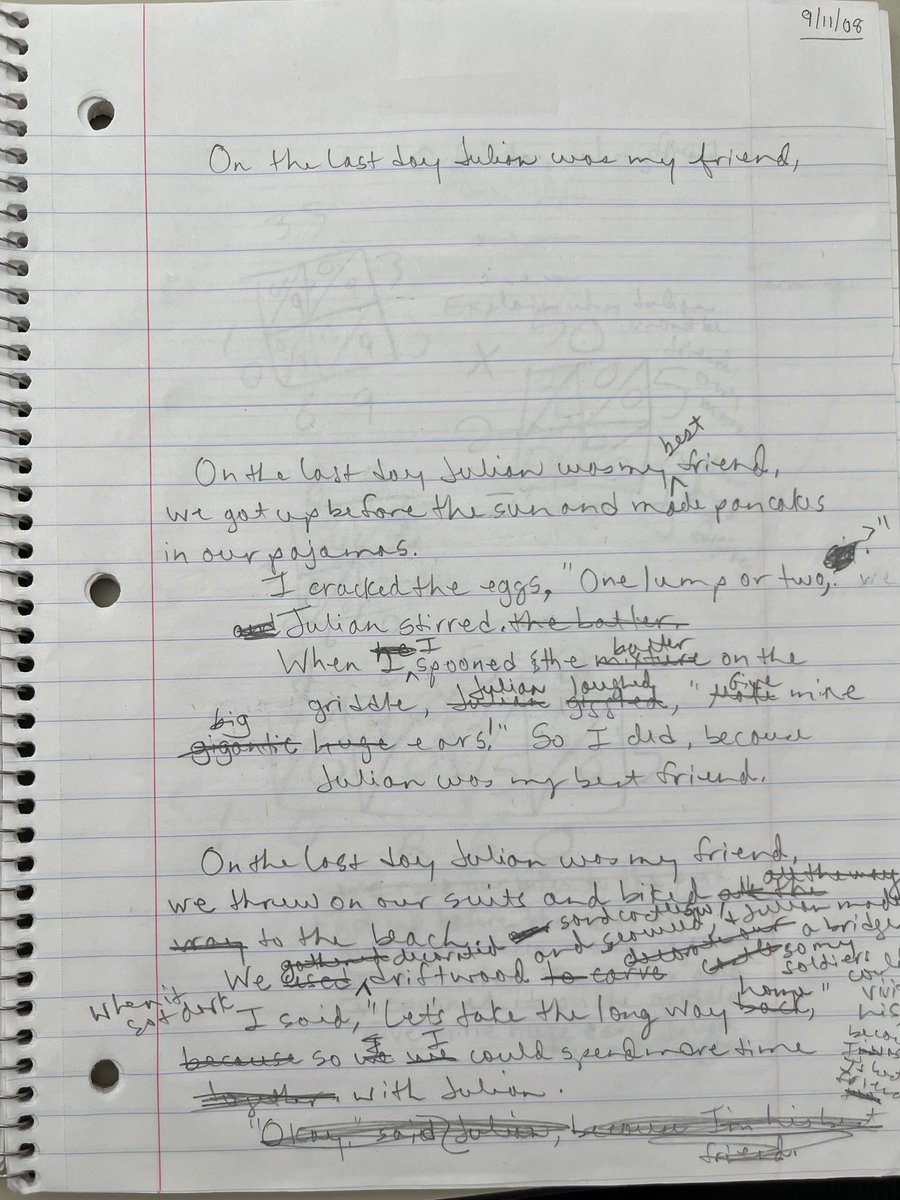 9/11/08
On the last day Julian was my friend,
On the last day Julian was my best friend,
we got up before the sun and made pancakes
in our pajamas.
I cracked the eggs, "One lump or two,?"
and Julian stirred. the batter.
When he I spooned the mixture batter on the
griddle, Julian Julian giggled laughed, "Make Give mine
gigantic big huge ears!" So I did, because
Julian was my best friend.
On the last day Julian was my friend,
we threw on our suits and biked all the all the way
way to the beach.
We used gathered decorated driftwood to carve sand castles w/
and seaweed, & Julian made
decorate our castle a bridge
so my soldiers could
When it got dark I said, "Let's take the long way back, home"
because so we I we I could spend more time
together. with Julian.
"Okay," said Julian, because I'm his best
friend.